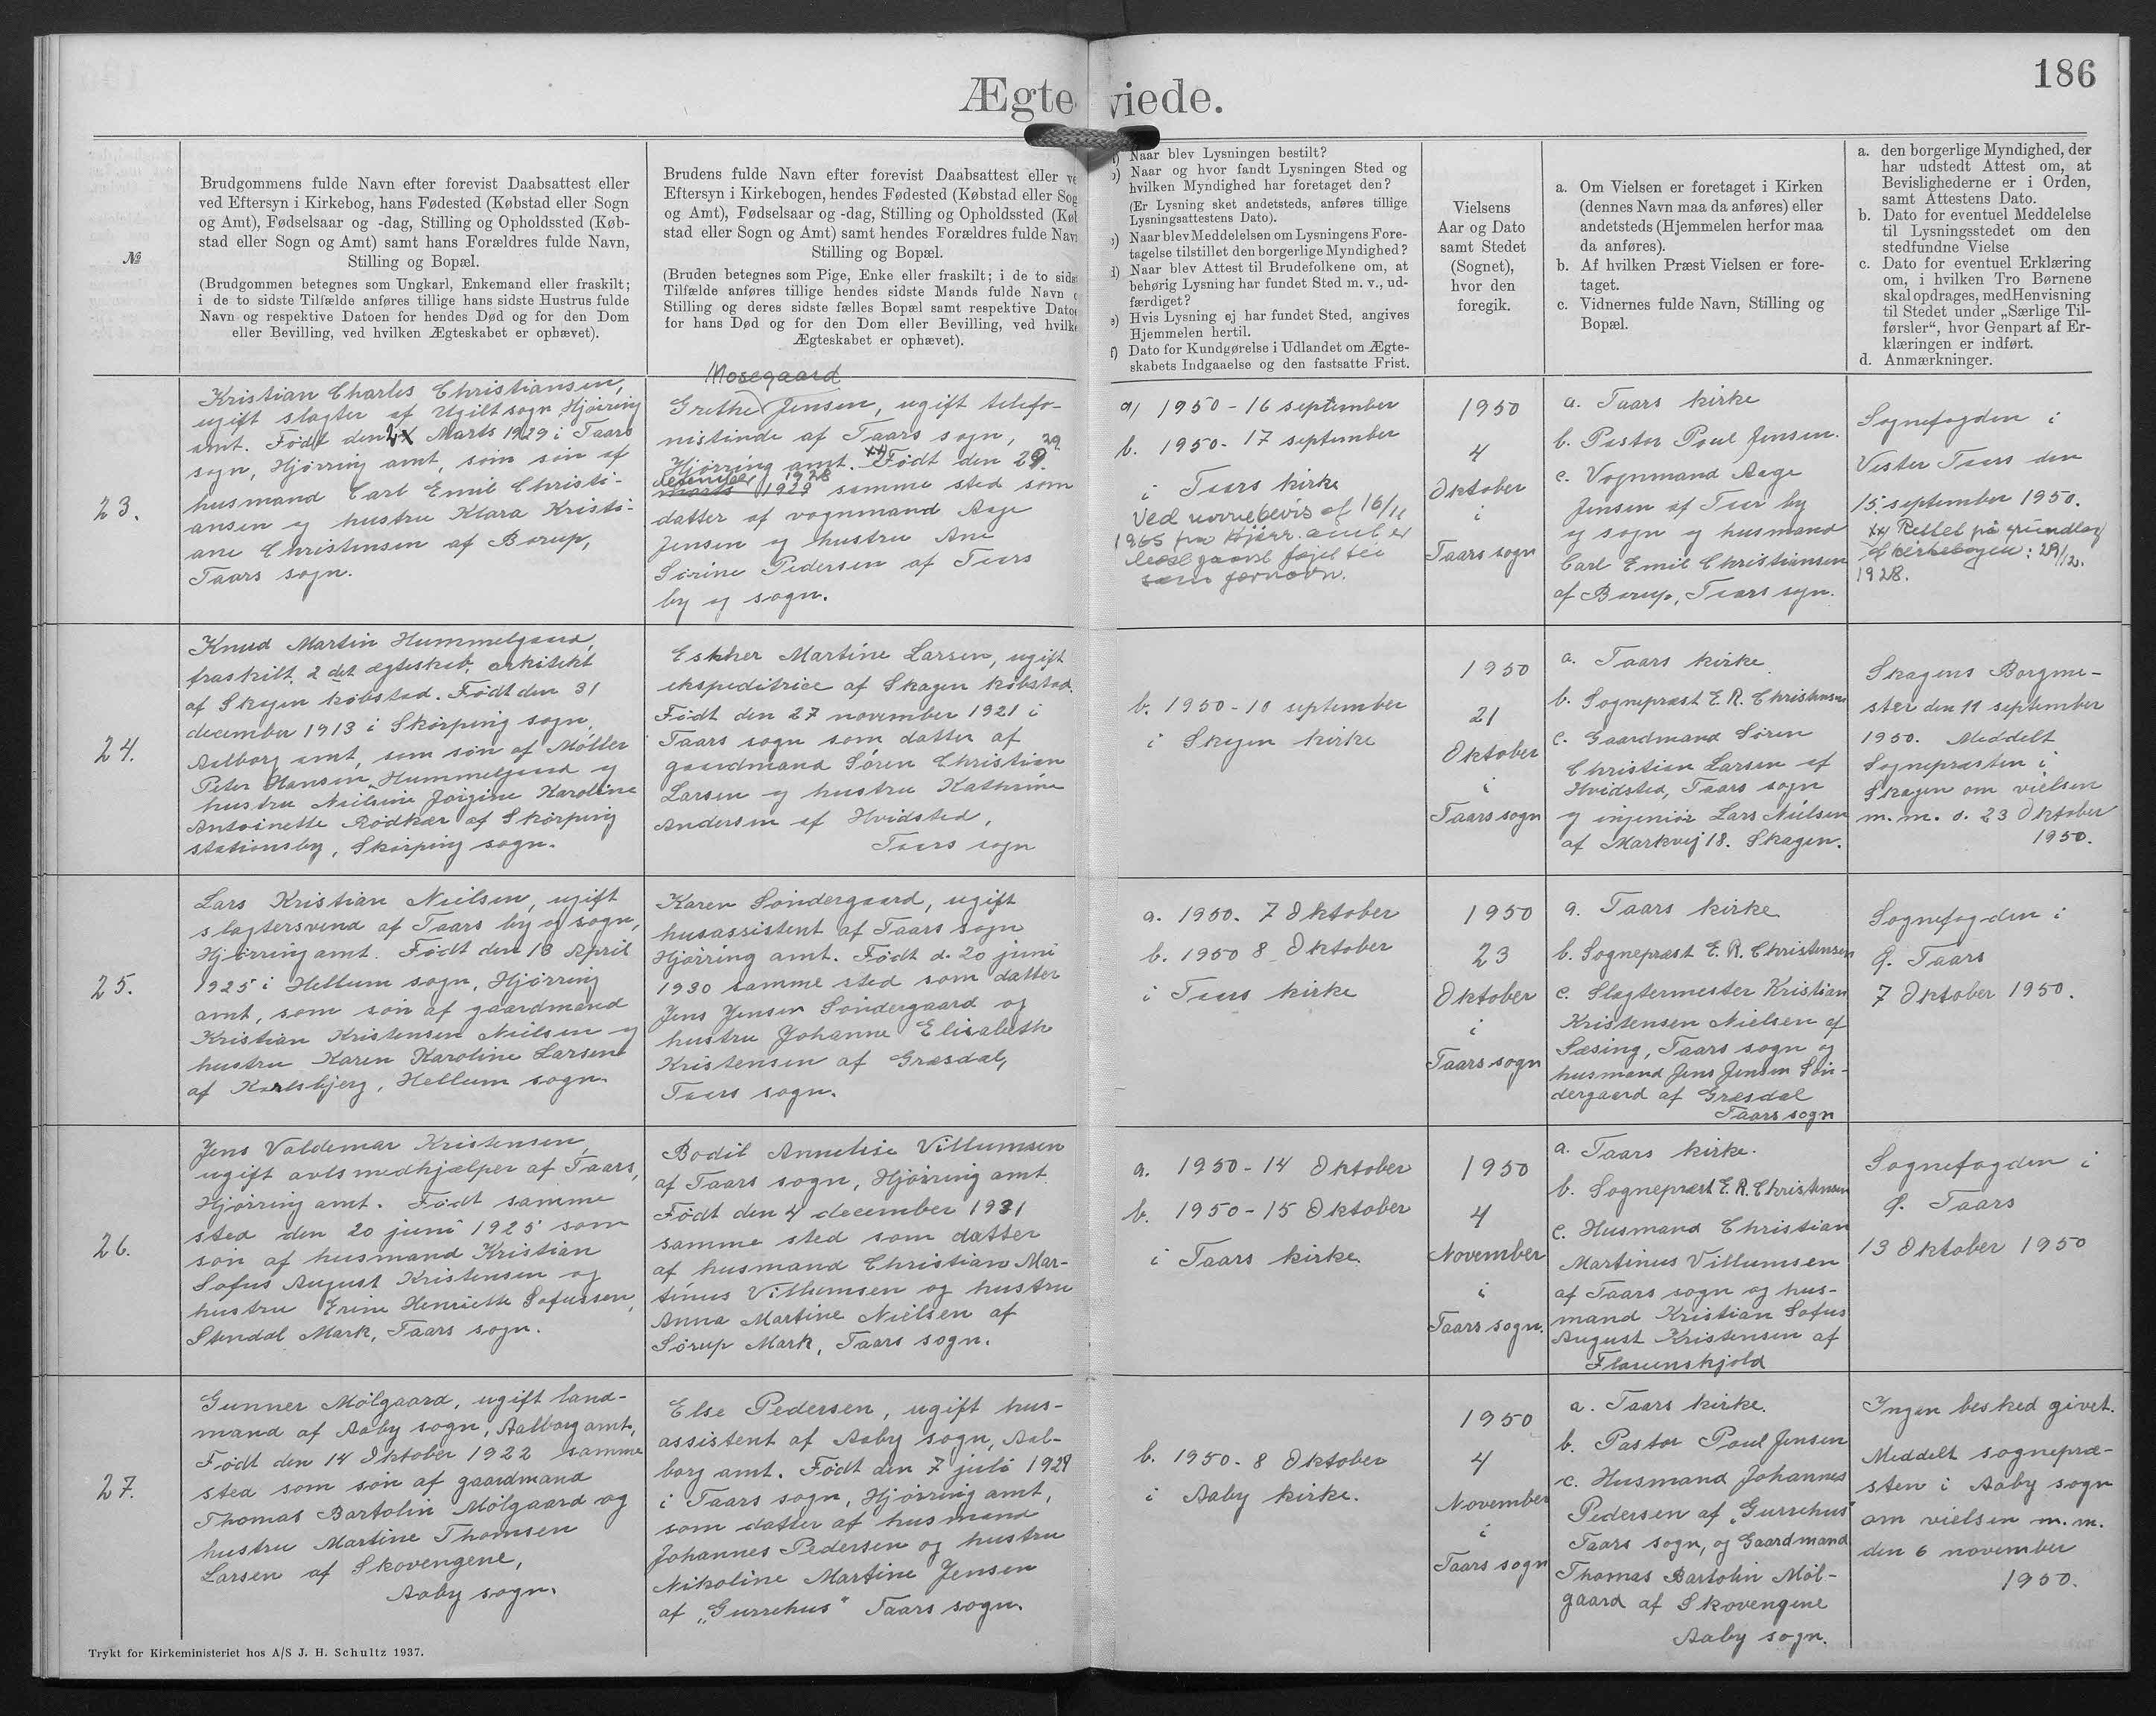 186
Ægteviede.
№
Brudgommens fulde Navn efter forevist Daabsattest eller
ved Eftersyn i Kirkebog, hans Fødested (Købstad eller Sogn
og Amt), Fødselsaar og -dag, Stilling og Opholdssted (Køb-
stad eller Sogn og Amt) samt hans Forældres fulde Navn,
Stilling og Bopæl.
(Brudgommen betegnes som Ungkarl, Enkemand eller fraskilt;
i de to sidste Tilfælde anføres tillige hans sidste Hustrus fulde
Navn og respektive Datoen for hendes Død og for den Dom
eller Bevilling, ved hvilken Ægteskabet er ophævet).
Brudens fulde Navn efter forevist Daabsattest eller ve
Eftersyn i Kirkebogen, hendes Fødested (Købstad eller Sog
og Amt), Fødselsaar og -dag, Stilling og Opholdssted (Køl
stad eller Sogn og Amt) samt hendes Forældres fulde Nav
Stilling og Bopæl.
(Bruden betegnes som Pige, Enke eller fraskilt; i de to sids
Tilfælde anføres tillige hendes sidste Mands fulde Navn
Stilling og deres sidste fælles Bopæl samt respektive Dato
for hans Død og for den Dom eller Bevilling, ved hvilk
Ægteskabet er ophævet).
a) Naar blev Lysningen bestilt?
b) Naar og hvor fandt Lysningen Sted og
hvilken Myndighed har foretaget den?
(Er Lysning sket andetsteds, anføres tillige
Lysningsattestens Dato).
c) Naar blev Meddelelsen om Lysningens Fore-
tagelse tilstillet den borgerlige Myndighed?
d) Naar blev Attest til Brudefolkene om, at
behørig Lysning har fundet Sted m. v., ud-
færdiget?
e) Hvis Lysning ej har fundet Sted, angives
Hjemmelen hertil.
f) Dato for Kundgørelse i Udlandet om Ægte-
skabets Indgaaelse og den fastsatte Frist.
Vielsens
Aar og Dato
samt Stedet
(Sognet),
hvor den
foregik.
a. Om Vielsen er foretaget i Kirken
(dennes Navn maa da anføres) eller
andetsteds (Hjemmelen herfor maa
da anføres).
b. Af hvilken Præst Vielsen er fore-
taget.
c. Vidnernes fulde Navn, Stilling og
Bopæl.
a. den borgerlige Myndighed, der
har udstedt Attest om, at
Bevislighederne er i Orden,
samt Attestens Dato.
b. Dato for eventuel Meddelelse
til Lysningsstedet om den
stedfundne Vielse
c. Dato for eventuel Erklæring
om, i hvilken Tro Børnene
skal opdrages, med Henvisning
til Stedet under „Særlige Til-
førsler“, hvor Genpart af Er-
klæringen er indført.
d. Anmærkninger.
23.
Kristian Charles Christiansen,
ugift slagter af Ugilt sogn, Hjørring
amt. Født den Marts 1929 i Taars
sogn, Hjørring amt, som søn af
husmand Carl Emil Christi-
ansen og hustru Klara Kristi-
ane Christensen af Borup,
Taars sogn.
Mosegaard
Grethe Jensen, ugift telefo-
nistinde af Taars sogn,
29
Hjørring amt. xx) Født den 29.
december 1928
marts 1929 samme sted som
datter af vognmand Aage
Jensen og hustru Ane
Sørine Pedersen af Taars
by og sogn.
a) 1950 - 16 september
b. 1950 - 17 september
i Taars kirke
Ved navnebevis af 16/11
1965 fra Hjørr. amt er
føjet til
som fornavn.
1950
4
Oktober
i
Taars sogn
a. Taars kirke
b. Pastor Poul Jensen.
c. Vognmand Aage
Jensen af Taars by
og sogn og husmand
Carl Emil Christiansen
af Borup, Taars sogn.
Sognefogden i
Vester Taars den
15. september 1950.
xx) Rettet på grundlag
af kirkebogen: 29/12.
1928.
24.
Knud Martin Hummelgaard,
fraskilt, 2 det ægteskab, arkitekt
af Skagen købstad. Født den 31
december 1913 i Skørping sogn,
Aalborg amt, som søn af Møller
Peter Hansen Hummelgaard og
hustru Nielsine Jørgine Karoline
Antoinette Rödkær af Skørping
stationsby, Skørping sogn.
Esther Martine Larsen, ugift
ekspeditrice af Skagen købstad.
Født den 27 november 1921 i
Taars sogn som datter af
gaardmand Søren Christian
Larsen og hustru Kathrine
Andersen af Hvidsted,
Taars sogn
b. 1950 - 10 september
i Skagen kirke
1950
21
Oktober
i
Taars sogn
a. Taars kirke
b. Sognepræst E. R. Christensen
c. Gaardmand Søren
Christian Larsen af
Hvidsted, Taars sogn
og ingeniør Lars Nielsen
af Markvej 18. Skagen.
Skagens Borgme-
ster den 11 september
1950. Meddelt
Sognepræsten i
Skagen om vielsen
m. m. d. 23 Oktober
1950.
25.
Lars Kristian Nielsen, ugift
slagtersvend af Taars by og sogn,
Hjørring amt. Født den 18 April
1925 i Hellum sogn, Hjørring
amt, som søn af gaardmand
Kristian Kristensen Nielsen og
hustru Karen Karoline Larsen
af Karlsbjerg, Hellum sogn.
Karen Søndergaard, ugift
husassistent af Taars sogn
Hjørring amt. Født d. 20 juni
1930 samme sted som datter
Jens Jensen Søndergaard og
hustru Johanne Elisabeth
Kristensen af Græsdal,
Taars sogn.
a. 1950. 7 Oktober
b. 1950 8 Oktober
i Taars kirke
1950
23
Oktober
i
Taars sogn
a. Taars kirke
b. Sognepræst E. R. Christensen
c. Slagtermester Kristian
Kristensen Nielsen af
Sæsing, Taars sogn og
husmand Jens Jensen Søn-
dergaard af Græsdal
Taars sogn
Sognefogden i
Ø. Taars
7 Oktober 1950.
26.
Jens Valdemar Kristensen,
ugift avlsmedhjælper af Taars,
Hjørring amt. Født samme
sted den 20 juni 1925 som
søn af husmand Kristian
Sofus August Kristensen og
hustru Erine Henriette Sofussen,
Stendal Mark, Taars sogn.
Bodil Annelise Villumsen
af Taars sogn, Hjørring amt.
Født den 4 december 1931
samme sted som datter
af husmand Christian Mar-
tinus Villumsen og hustru
Anna Martine Nielsen af
Sørup Mark, Taars sogn.
a. 1950 - 14 Oktober
b. 1950 - 15 Oktober
i Taars kirke.
1950
4
November
i
Taars sogn.
a. Taars kirke.
b. Sognepræst E. R. Christensen
c. Husmand Christian
Martinus Villumsen
af Taars sogn og hus-
mand Kristian Sofus
August Kristensen af
Flauenskjold
Sognefogden i
Ø. Taars
13 Oktober 1950
27.
Gunner Mølgaard, ugift land-
mand af Aaby sogn, Aalborg amt,
Født den 14 Oktober 1922 samme
sted som søn af gaardmand
Thomas Bartolin Mølgaard og
hustru Martine Thomsen
Larsen af Skovengene,
Aaby sogn.
Else Pedersen, ugift hus-
assistent af Aaby sogn, Aal-
borg amt. Født den 7 juli 1929
i Taars sogn, Hjørring amt,
som datter af husmand
Johannes Pedersen og hustru
Nikoline Martine Jensen
af „Gurrehus“ Taars sogn.
b. 1950 - 8 Oktober
i Aaby kirke.
1950
4
November
i
Taars sogn
a. Taars kirke.
b. Pastor Poul Jensen
c. Husmand Johannes
Pedersen af „Gurrehus“
Taars sogn, og Gaardmand
Thomas Bartolin Møl-
gaard af Skovengene
Aaby sogn.
Ingen besked givet.
Meddelt sognepræ-
sten i Aaby sogn
om vielsen m. m.
den 6 november
1950.
Trykt for Kirkeministeriet hos A/S J. H. Schultz 1937.